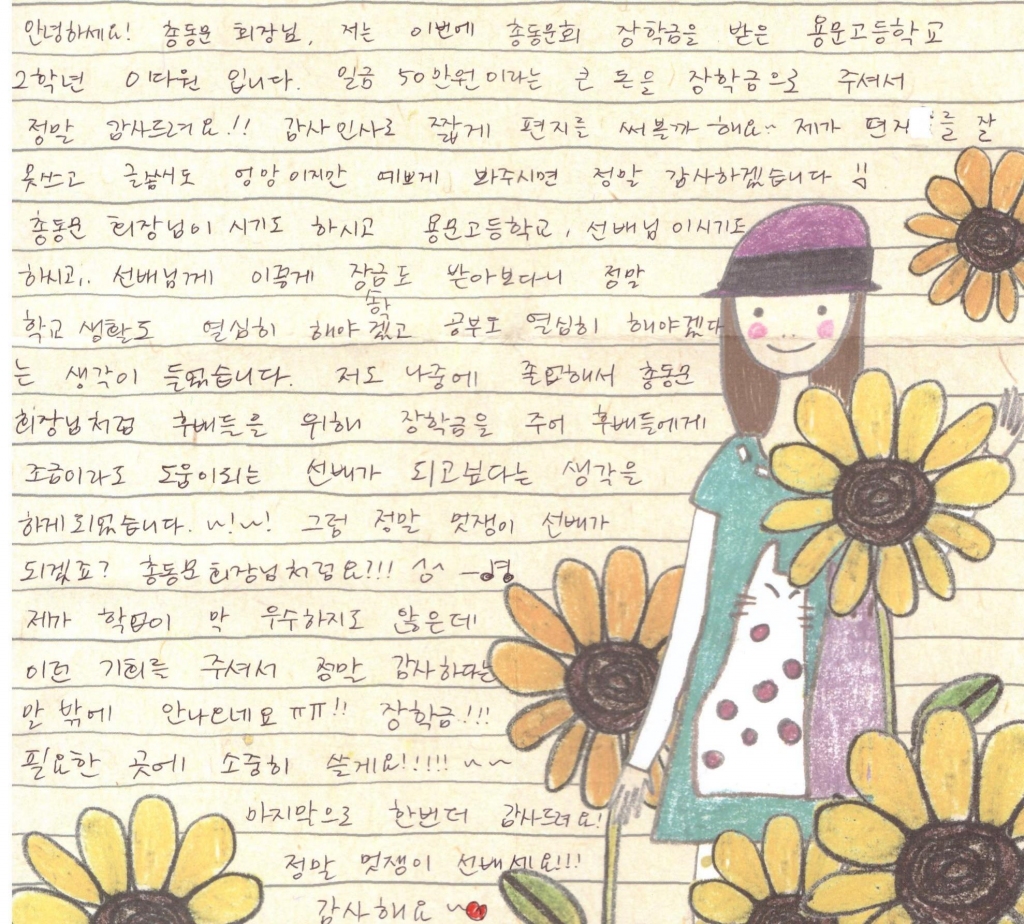 안녕하세요! 총동문 회장님, 저는 이번에 총동문회 장학금을 받은 용문고등학교
2학년 이다원 입니다. 일금 50만원이라는 큰 돈을 장학금으로 주셔서
정말 감사드려요!! 감사인사로 짧게 편지를 써볼까 해요~ 제가 편지를 잘
못쓰고 글씨도 엉망이지만 예쁘게 봐주시면 정말 감사하겠습니다 !!
총동문 회장님이 시기도 하시고 용문고등학교, 선배님 이시기도
하시고,. 선배님께 이렇게 장학금도 받아보다니 정말
학교 생활도 열심히 해야겠고 공부도 열심히 해야겠다
는 생각이 들었습니다. 저도 나중에 졸업해서 총동문
회장님처럼 후배들을 위해 장학금을 주어 후배들에게
조금이라도 도움이되는 선배가 되고싶다는 생각을
하게되었습니다. ~!~! 그럼 정말 멋쟁이 선배가
되겠죠? 총동문회장님처럼요?!! ^^
제가 학업이 막 우수하지도 않은데
이런 기회를 주셔서 정말 감사하다는
말 밖에 안나오네요 ㅠㅠ!! 장학금!!!
필요한 곳에 소중히 쓸게요!!!!! ~~
마지막으로 한번더 감사드려요!
정말 멋쟁이 선배세요!!!
감사해요 ~